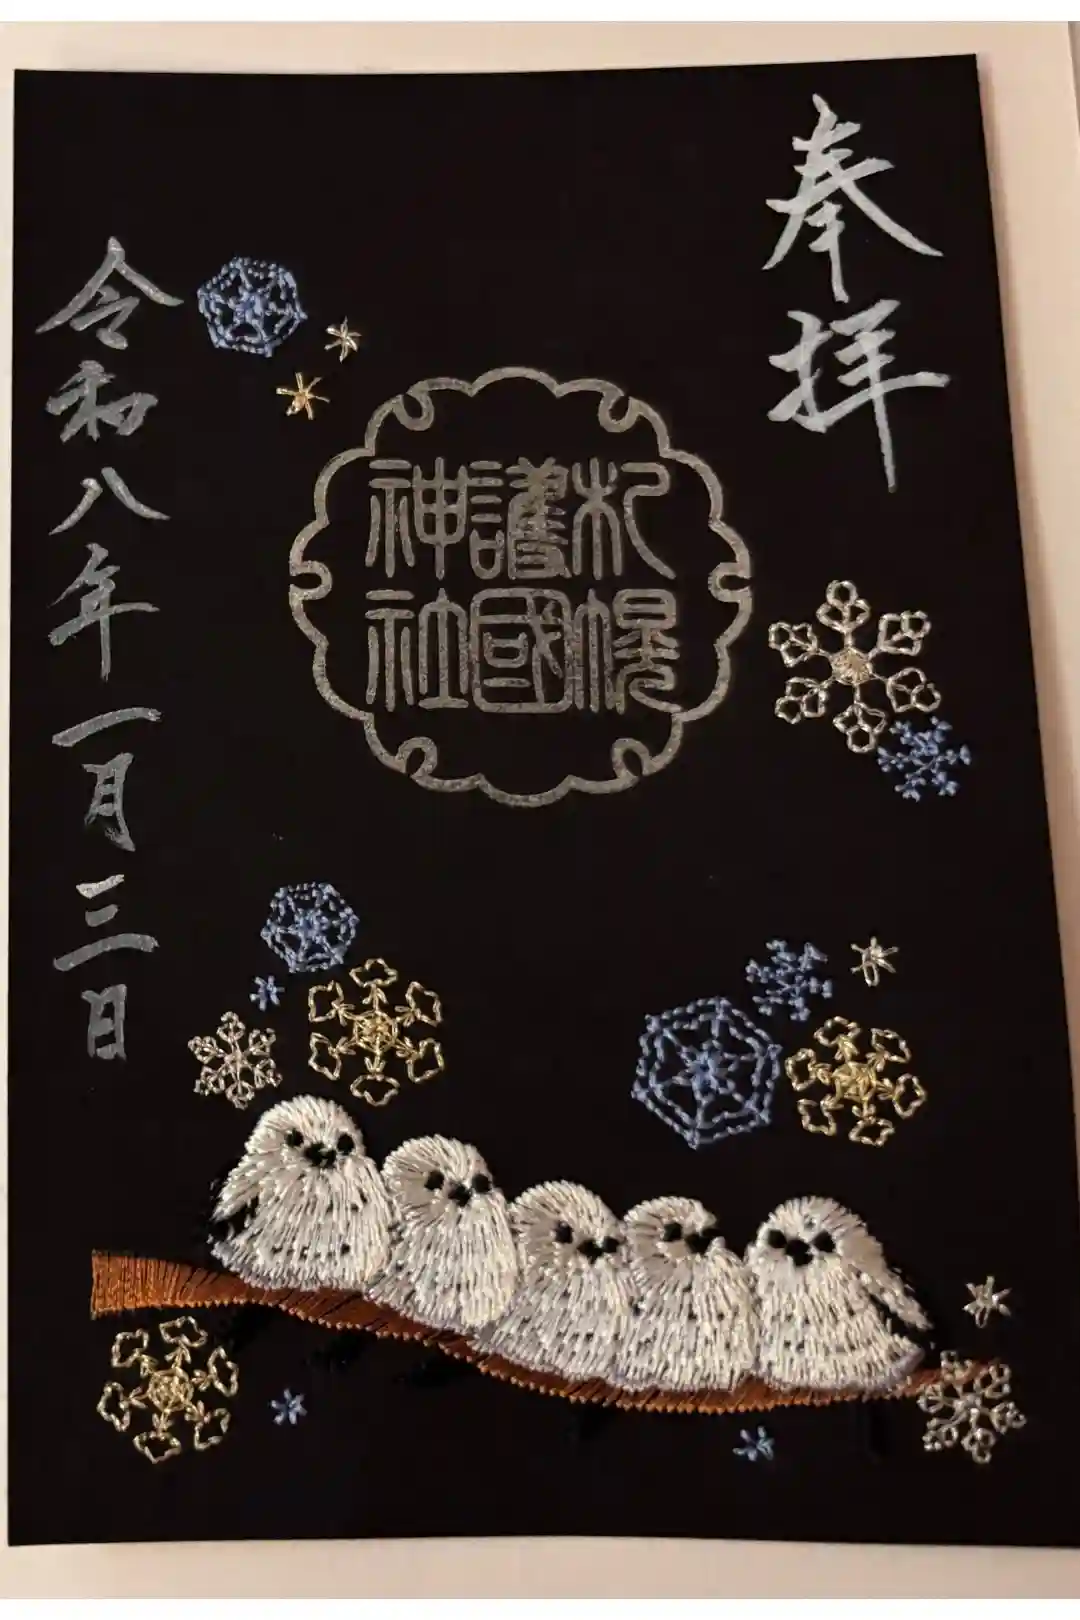 奉拝
札幌
護國
神社
令和八年一月三日